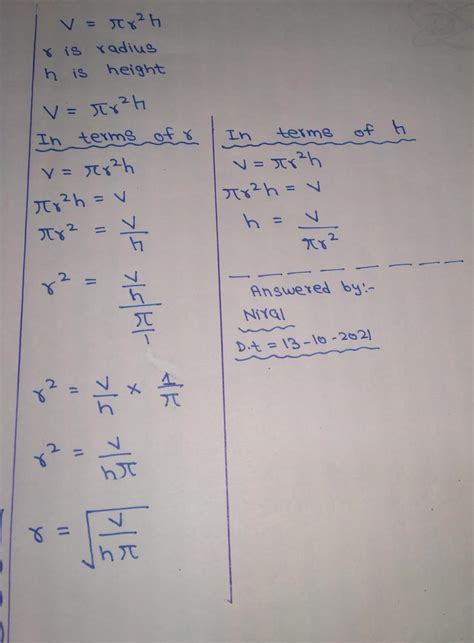 V = πr²h
r is radius
h is height
V = πr²h
In terms of r
V = πr²h
πr²h = V
πr² = V/h
r² = V/h / π/1
r² = V/h × 1/π
r² = V/hπ
r = √V/hπ
In terms of h
V = πr²h
πr²h = V
h = V/πr²
Answered by:-
Niral
D.t = 13-10-2021